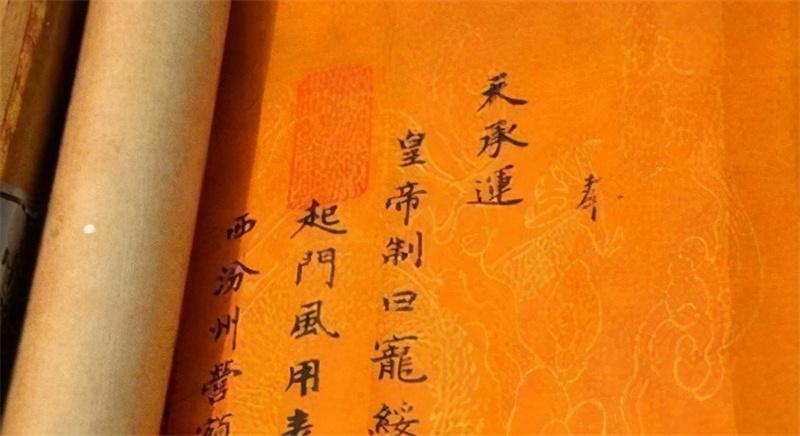 奉
天承運
皇帝制曰寵綏
起門風用表
西汾州營